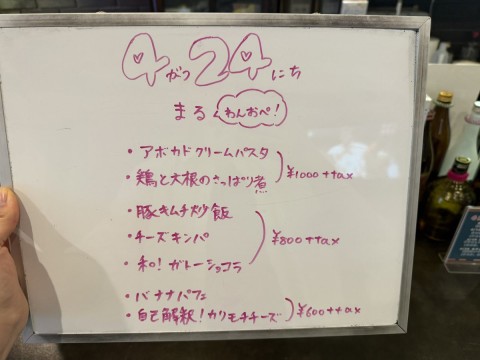 4がつ24にち
まる わんおぺ!
・アボカドクリームパスタ
・鶏と大根のさっぱり煮
¥1000+tax
・豚キムチ炒飯
・チーズキンパ
・和!ガトーショコラ
¥800+tax
・バナナパフェ
・自己解釈!カリモチチーズ
¥600+tax